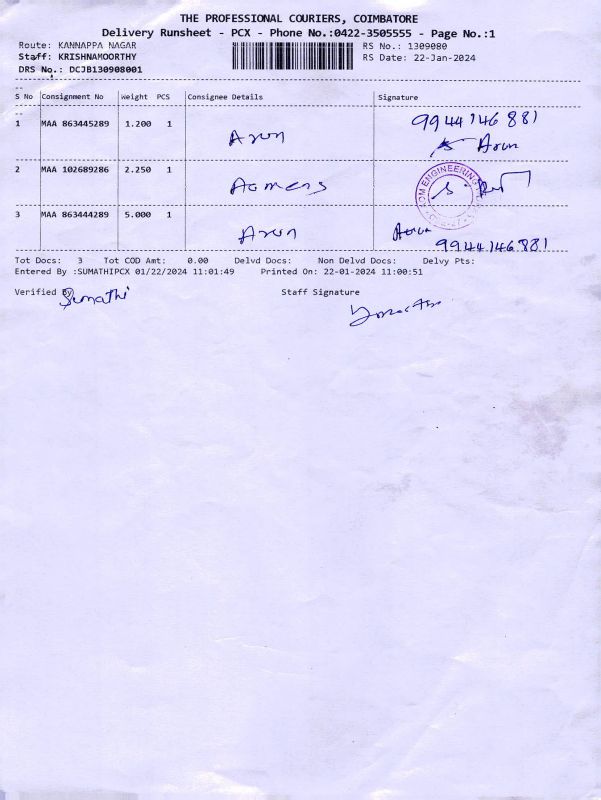 THE PROFESSIONAL COURIERS, COIMBATORE
Delivery Runsheet - PCX - Phone No.:0422-3505555 - Page No.:1
Route: KANNAPPA NAGAR
RS No.: 1309080
Staff: KRISHNAMOORTHY
RS Date: 22-Jan-2024
DRS No.: DCJB130908001
S No Consignment No Weight PCS Consignee Details Signature
1 MAA 863445289 1.200 1 Arun 9944146881
Arun
2 MAA 102689286 2.250 1
ENGINEERING
3 MAA 863444289 5.000 1 Arun Arun
9944146881
Tot Docs: 3 Tot COD Amt: 0.00 Delvd Docs: Non Delvd Docs: Delvy Pts:
Entered By :SUMATHIPCX 01/22/2024 11:01:49 Printed On: 22-01-2024 11:00:51
Verified By Sumathi Staff Signature